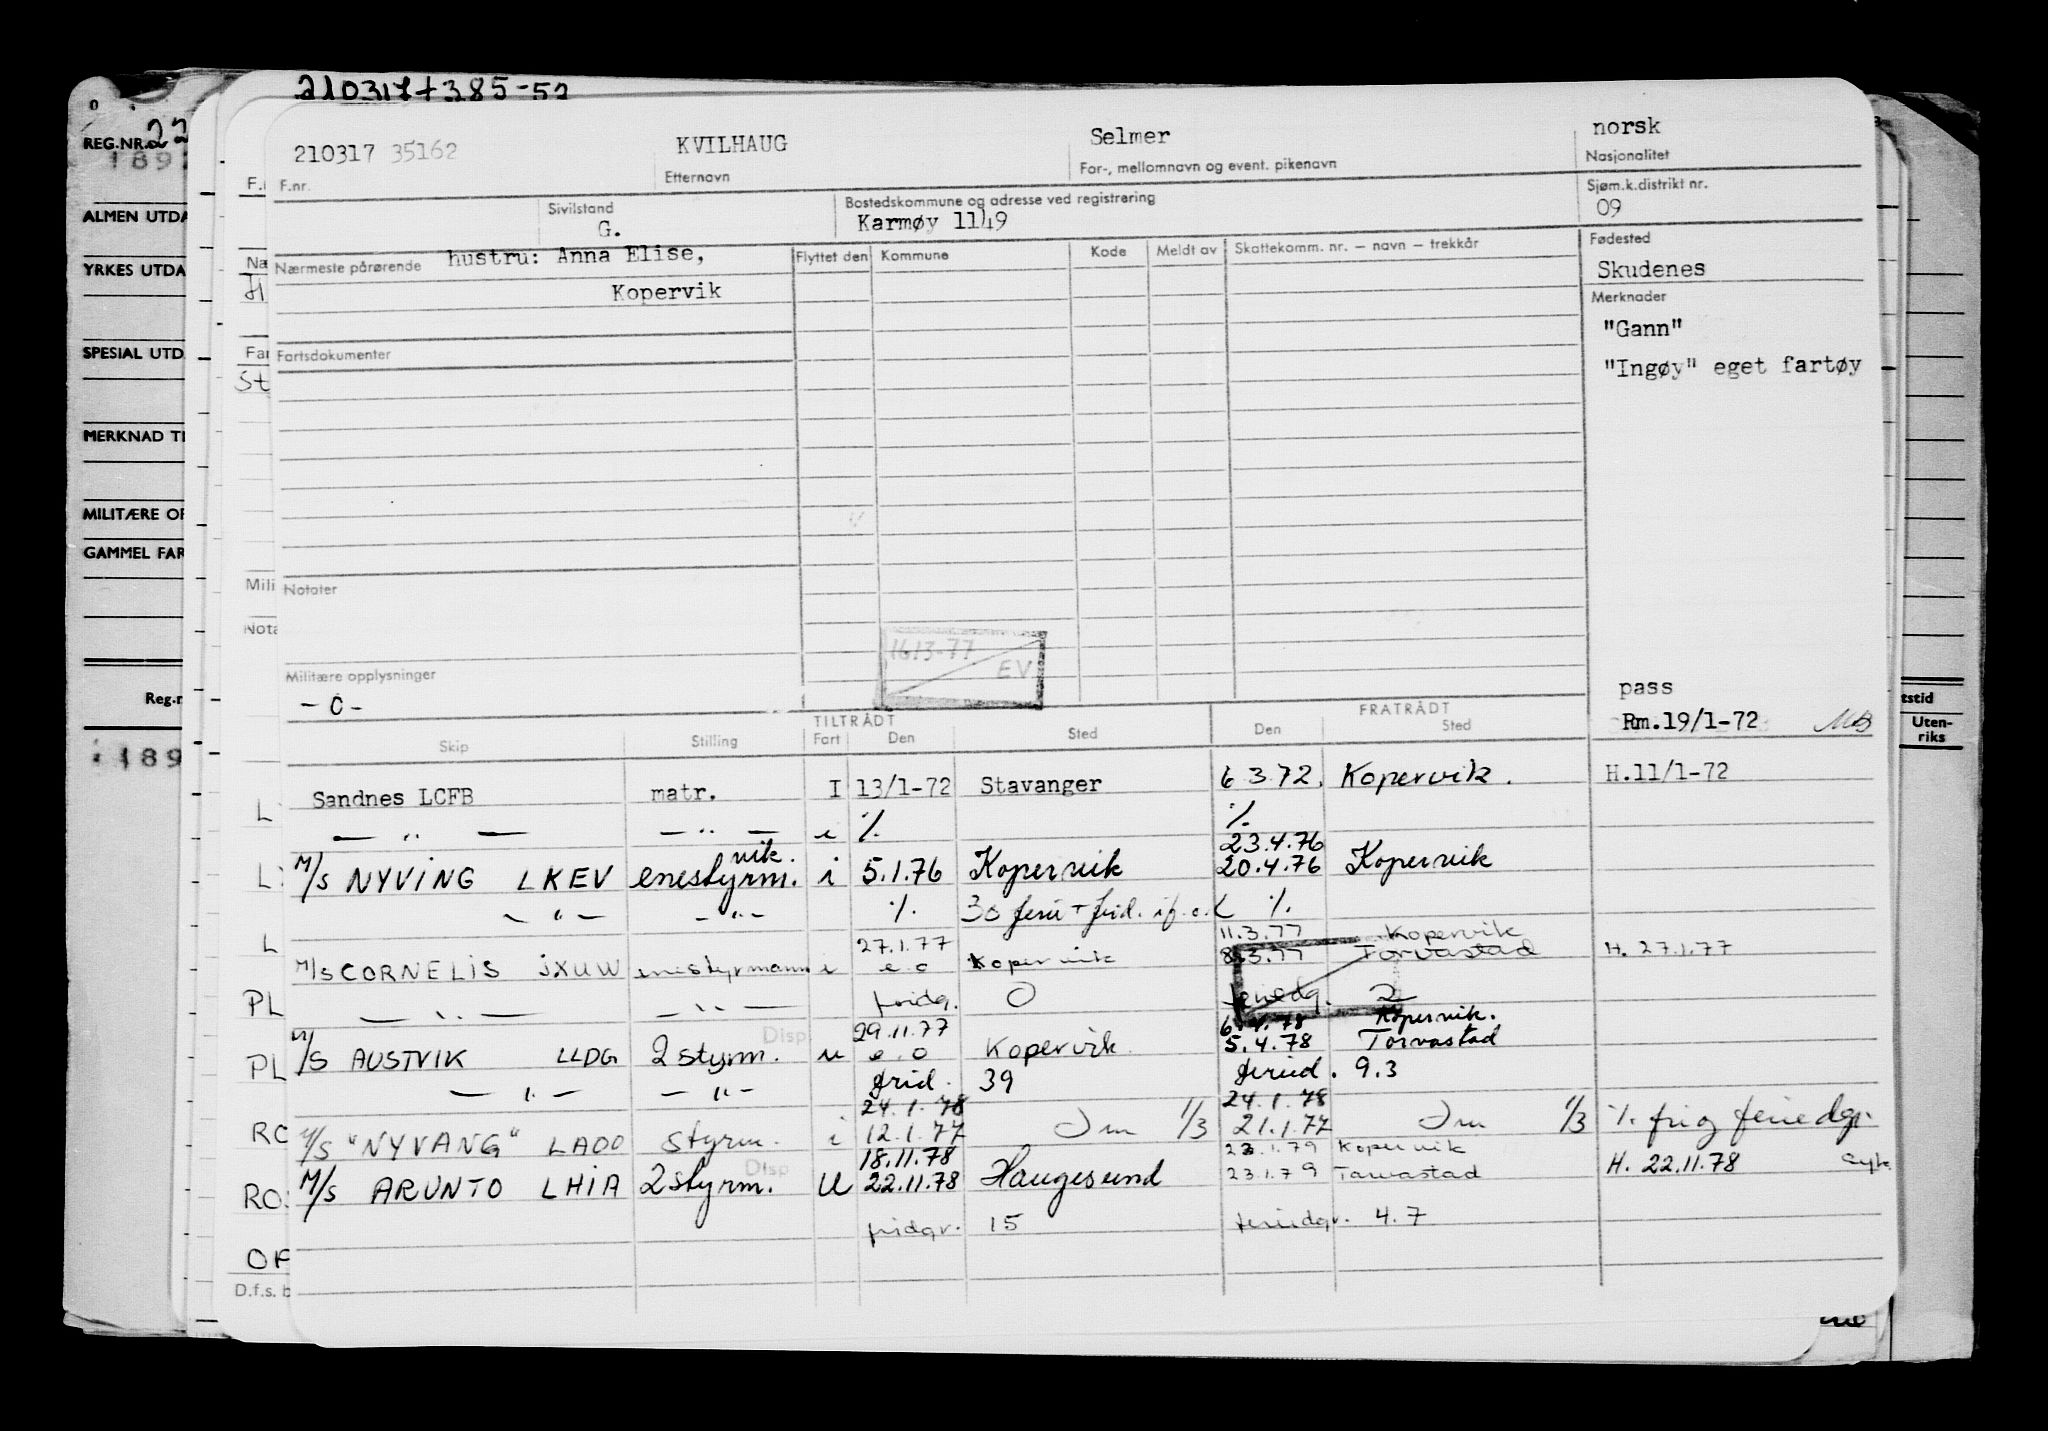 210317+385-52
REG.NR. 22
189
ALMEN UTDA
YRKES UTDA
SPESIAL UTD
MERKNAD TI
MILITÆRE OP
GAMMEL FAR
Reg.n
189
210317 35162 KVILHAUG Selmer norsk
F.nr. Etternavn For-, mellomnavn og event. pikenavn Nasjonalitet
Sivilstand Bostedskommune og adresse ved registrering Sjøm.k.distrikt nr.
G. Karmøy 1149 09
Nærmeste pårørende hustru: Anna Elise, Flyttet den Kommune Kode Meldt av Skattekomm. nr. — navn — trekkår Fødested
Kopervik Skudenes
Merknader
"Gann"
Fartsdokumenter "Ingøy" eget fartøy
Notater
1613-77
EV
Militære opplysninger pass
- 0 - Rm.19/1-72 MB
TILTRÅDT FRATRÅDT
Skip Stilling Fart Den Sted Den Sted
Sandnes LCFB matr. I 13/1-72 Stavanger 6 3.72. Kopervik. H.11/1-72
— " — — " — i % %
23.4.76
M/S NYVING LKEV vik. enestyrm. i 5.1.76 Kopervik 20.4.76 Kopervik
— " — — " — % 30 %
27.1.77 11.3.77 Kopervik
M/S CORNELIS JXUW enestyrmann i e.o Kopervik 8.3.77 Torvastad H. 27.1.77
— " — — " — fridg. 0 feriedg. 2
29.11.77 6.4.78 Kopervik.
M/S AUSTVIK LLDG 2 styrm. Disp u e.o Kopervik 5.4.78 Torvastad
— " — — " — frid. 39 feried. 9.3
24.1.78 24.1.78
M/S "NYVANG" LAOO styrm. i 12.1.77 1/3 21.1.77 1/3 %. fri og feriedgr.
18.11.78 23.1.79 Kopervik
M/S ARUNTO LHIA 2 styrm. Disp U 22.11.78 Haugesund 23.1.79 Tarvastad H. 22.11.78
fridgr. 15 feriedgr. 4.7
D.f.s. b
tstid
Uten-
riks